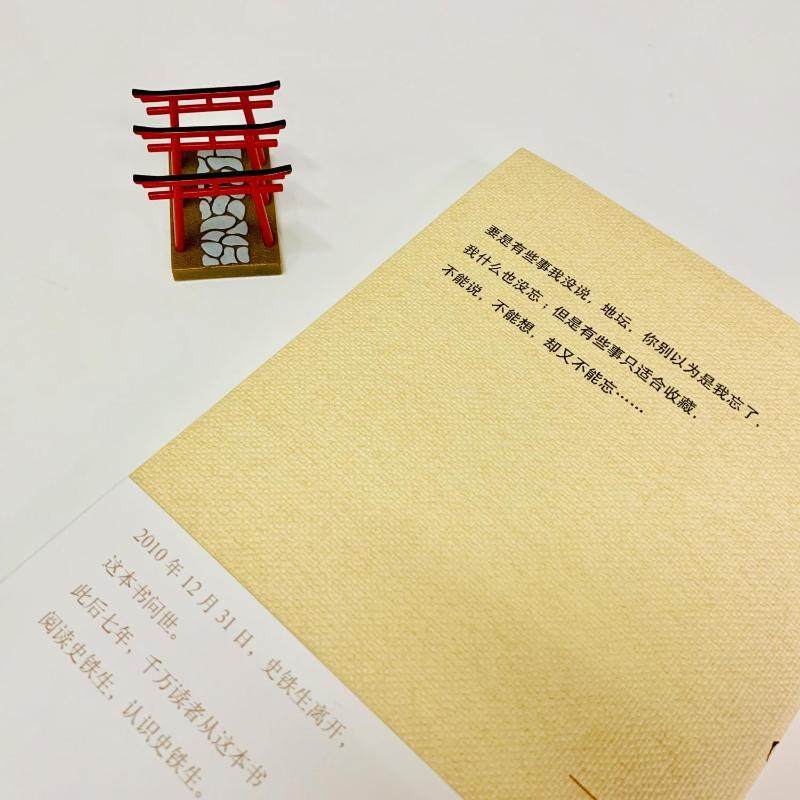 要是有些事我没说，地坛，你别以为是我忘了，
我什么也没忘；但是有些事只适合收藏，
不能说，不能想，却又不能忘……
2010 年 12 月 31 日，史铁生离开，
这本书问世。
此后七年，千万读者从这本书
阅读史铁生，认识史铁生。